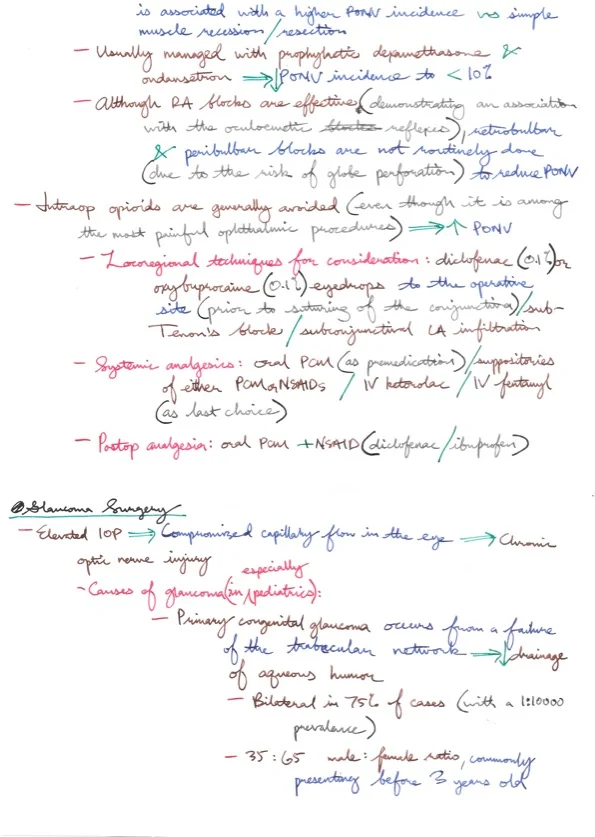 is associated with a higher PONV incidence vs simple
muscle recession/resection
— Usually managed with prophylactic dexamethasone &
ondansetron ⇒ ↓ PONV incidence to < 10%
— Although RA blocks are effective (demonstrating an association
with the oculoemetic reflexes), retrobulbar
& peribulbar blocks are not routinely done
(due to the risk of globe perforation) to reduce PONV
— Intraop opioids are generally avoided (even though it is among
the most painful ophthalmic procedures) ⇒ ↑ PONV
— Locoregional techniques for consideration: diclofenac (0.1%) or
oxybuprocaine (0.1%) eyedrops to the operative
site (prior to suturing of the conjunctiva)/sub-
Tenon's block/subconjunctival LA infiltration
— Systemic analgesics: oral PCM (as premedication)/suppositories
of either PCM or NSAIDs / IV ketorolac / IV fentanyl
(as last choice)
— Postop analgesia: oral PCM + NSAID (diclofenac/ibuprofen)
Glaucoma Surgery
— Elevated IOP ⇒ Compromized capillary flow in the eye ⇒ Chronic
optic nerve injury
especially
~ Causes of glaucoma (in pediatrics):
— Primary congenital glaucoma occurs from a failure
of the trabecular network ⇒ ↓ drainage
of aqueous humor
— Bilateral in 75% of cases (with a 1:10000
prevalance)
— 35:65 male: female ratio, commonly
presenting before 3 years old